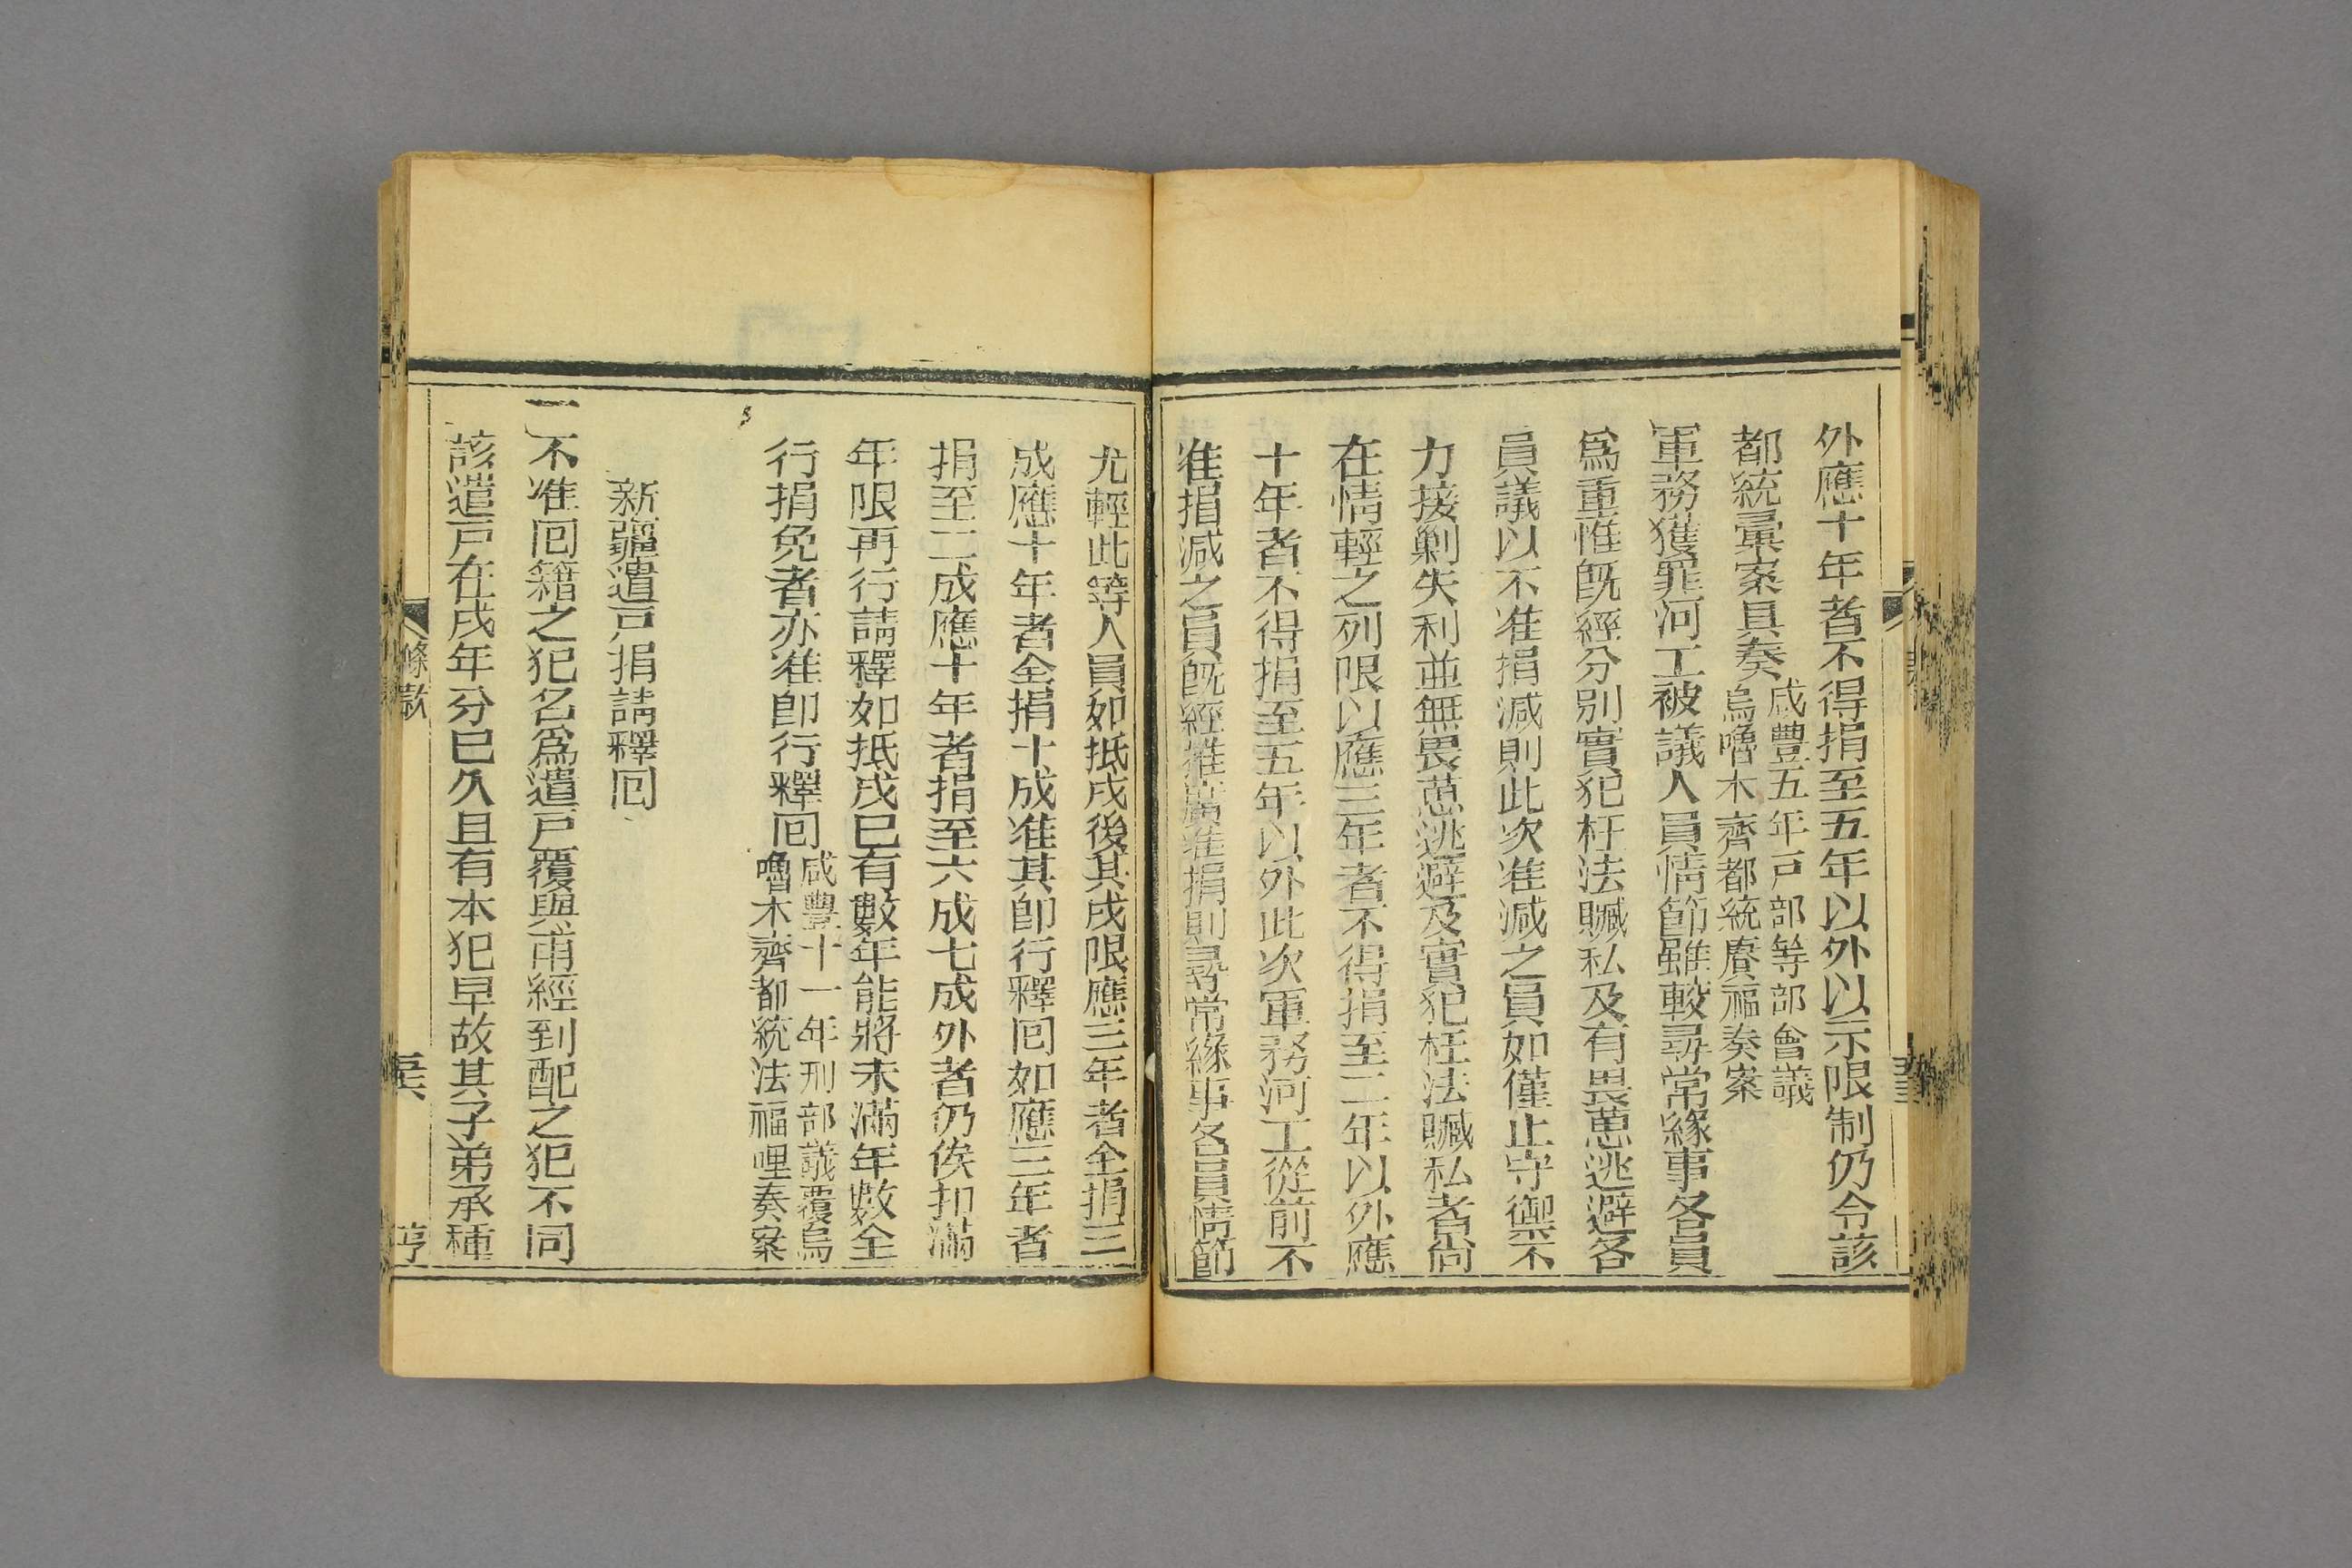 外應十年者不得捐至五年以外以示限制仍令該
都統彙案具奏咸豐五年戸部等部會議
烏嚕木齊都統賡福奏案
軍務獲罪河工被議人員情節雖較尋常緣事各員
爲重惟旣經分別實犯枉法贓私及有畏葸逃避各
員議以不准捐減則此次准減之員如僅止守禦不
力接剿失利並無畏葸逃避及實犯枉法贓私者尙
在情輕之列限以應三年者不得捐至二年以外應
十年者不得捐至五年以外此次軍務河工從前不
准捐減之員旣經推廣准捐則尋常緣事各員情節
尤輕此等人員如抵戍後其戍限應三年者全捐三
成應十年者全捐十成准其卽行釋回如應三年者
捐至二成應十年者捐至六成七成外者仍俟扣滿
年限再行請釋如抵戍已有數年能將未滿年數全
行捐免者亦准卽行釋回咸豐十一年刑部議覆烏
嚕木齊都統法福哩奏案
新疆遣戸捐請釋回
一不准回籍之犯名爲遣戸覆與甫經到配之犯不同
該遣戸在戍年分已久且有本犯早故其子弟承種
條款
亨